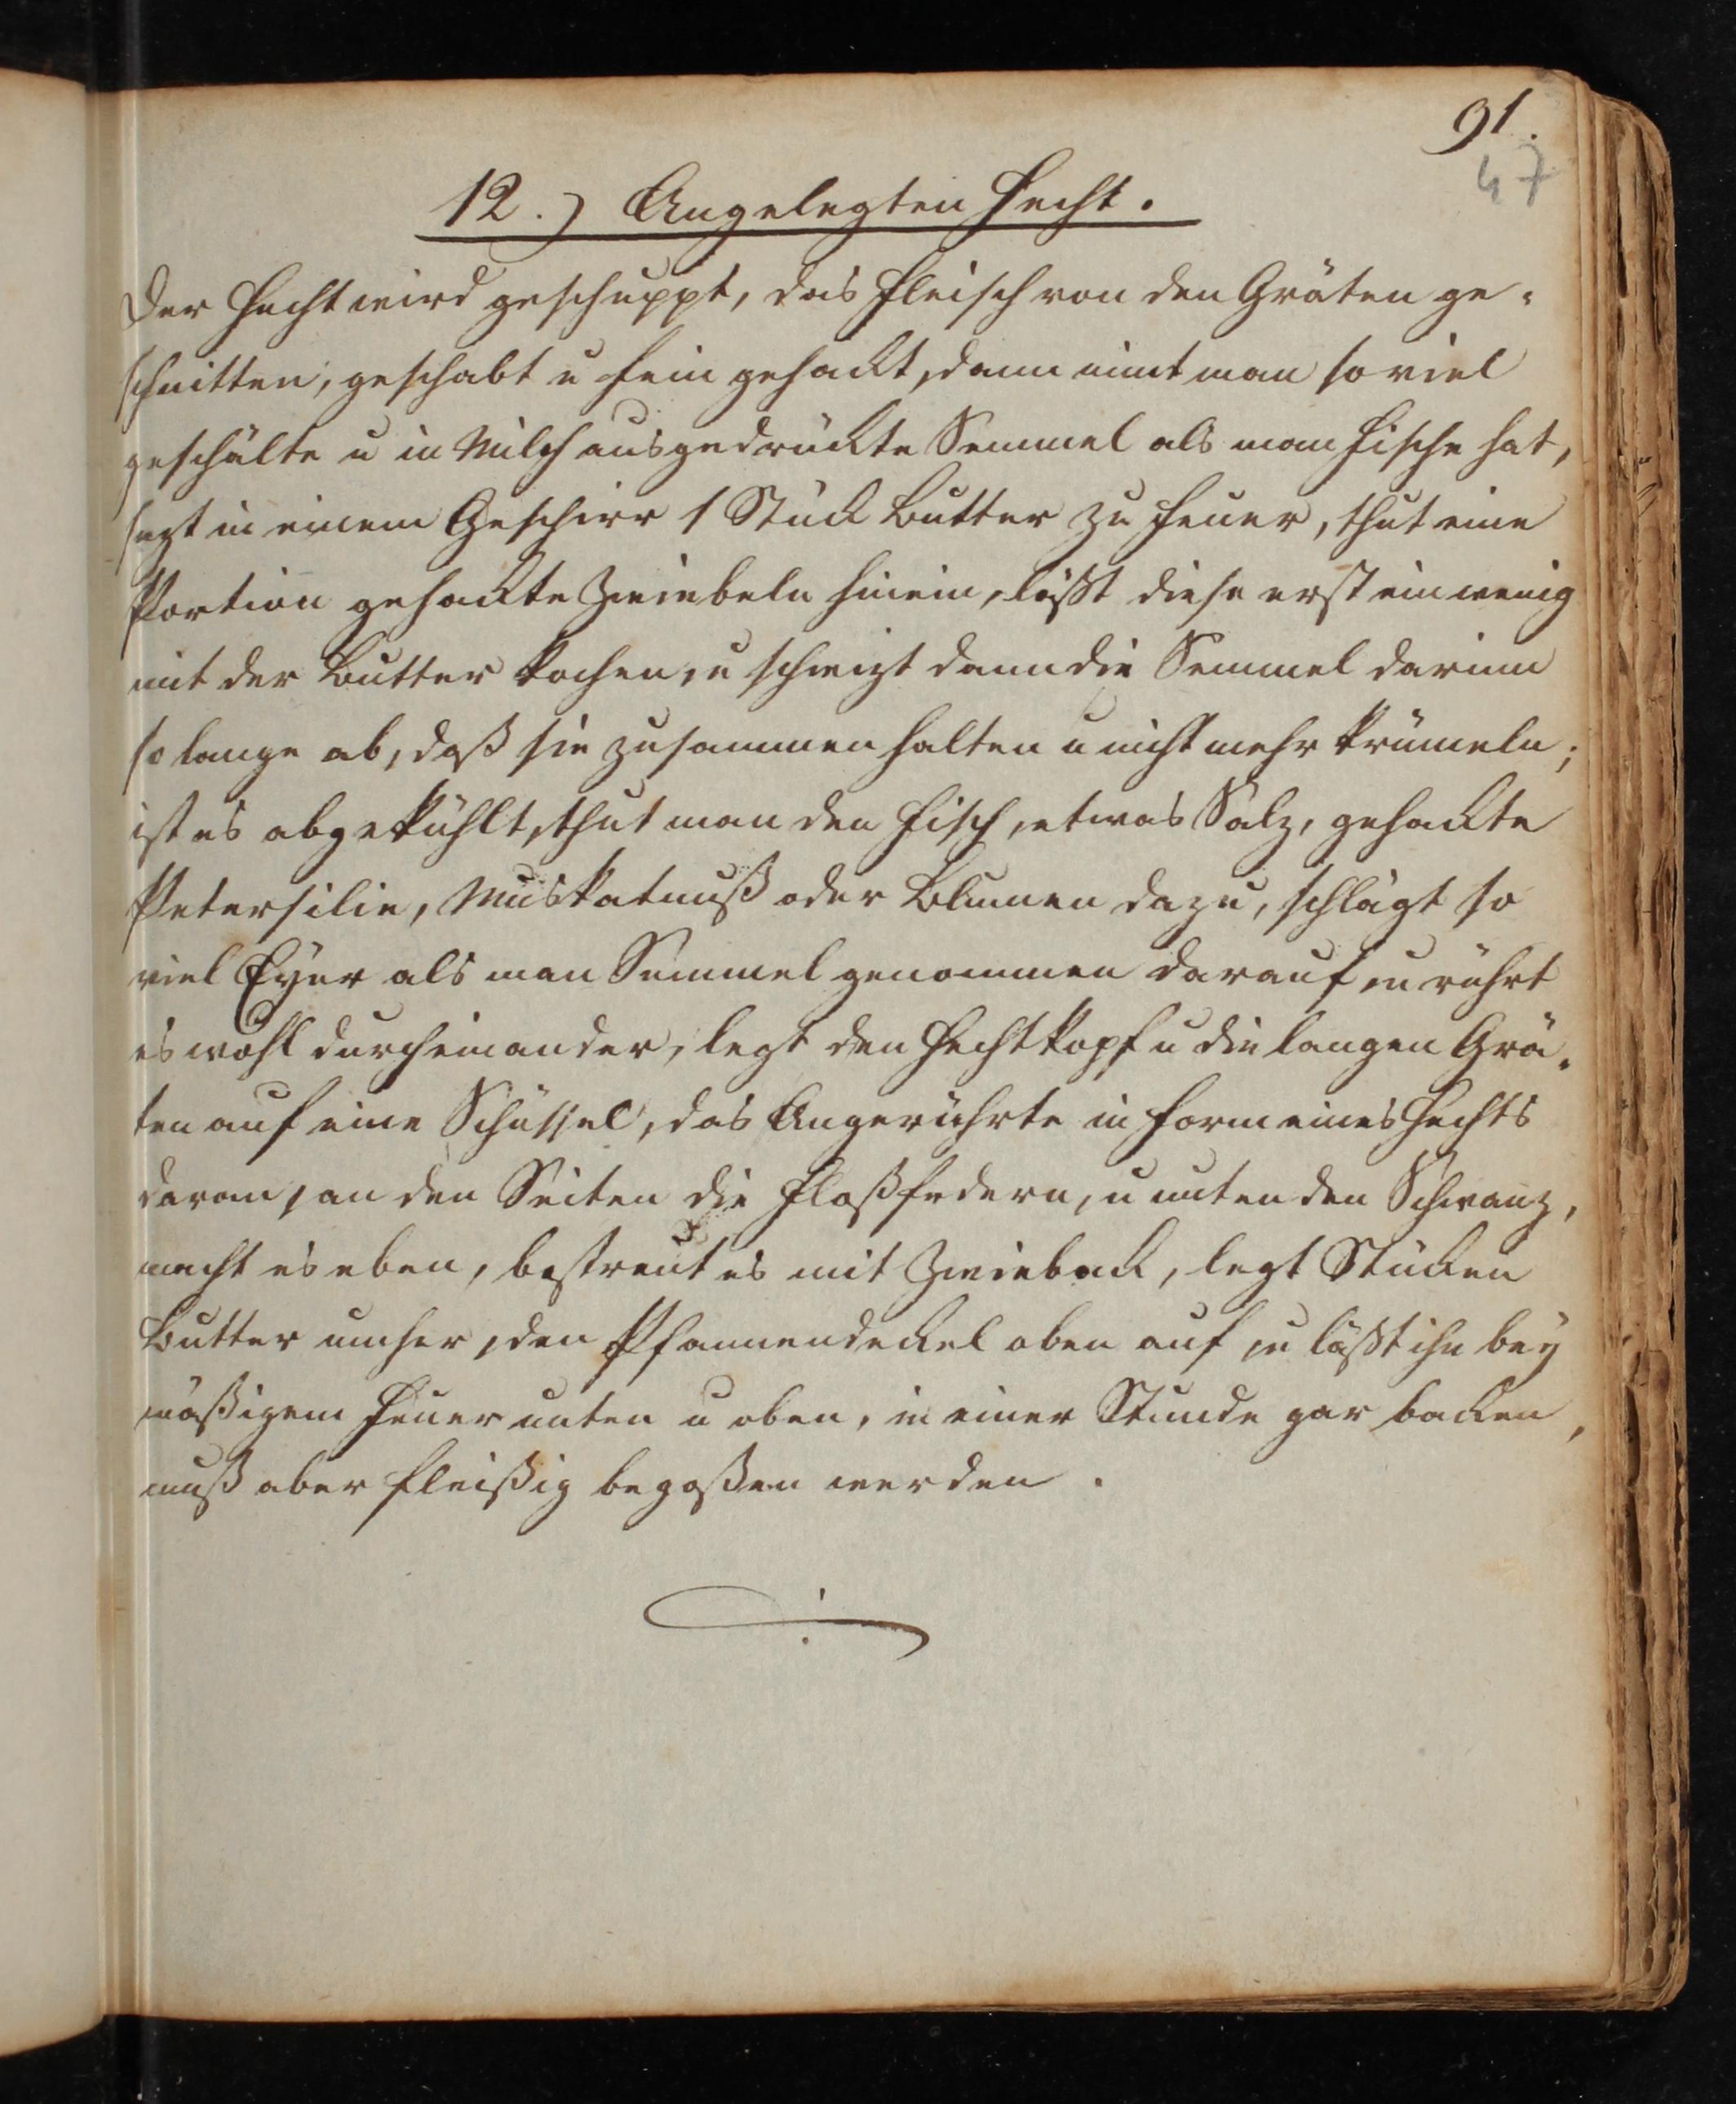 91.
47
12.) Angelegten Hecht.
Der Hecht wird geschuppt, das Fleisch von den Gräten ge-
schnitten, geschabt u fein gehackt, dann nimt man so viel
geschälte u in Milch ausgedrückte Semmel als man Fische hat,
sezt in einem Geschirr 1 Stück Butter zu Feuer, thut eine
Portion gehackte Zwiebeln hinein, läßt diese erst ein wenig
mit der Butter kochen, u schwizt dann die Semmel darinn
so lange ab, daß sie zusammen halten u nicht mehr krümeln;
ist es abgekühlt, thut man den Fisch, etwas Salz, gehackte
Petersilie, Muskatnuß oder Blumen dazu, schlägt so
viel Eyer als man Semmel genommen darauf, u rührt
es wohl durcheinander, legt den Hechtkopf u die langen Grä-
ten auf eine Schüssel, das Angerührte in Form eines Hechts
daran, an den Seiten die Floßfedern, u unten den Schwanz,
macht es eben, bestreut es mit Zwieback, legt Stücken
Butter umher, den Pfannendeckel oben auf, u läßt ihn bey
mäßigem Feuer unten u oben, in einer Stunde gar backen,
muß aber fleißig begoßen werden.